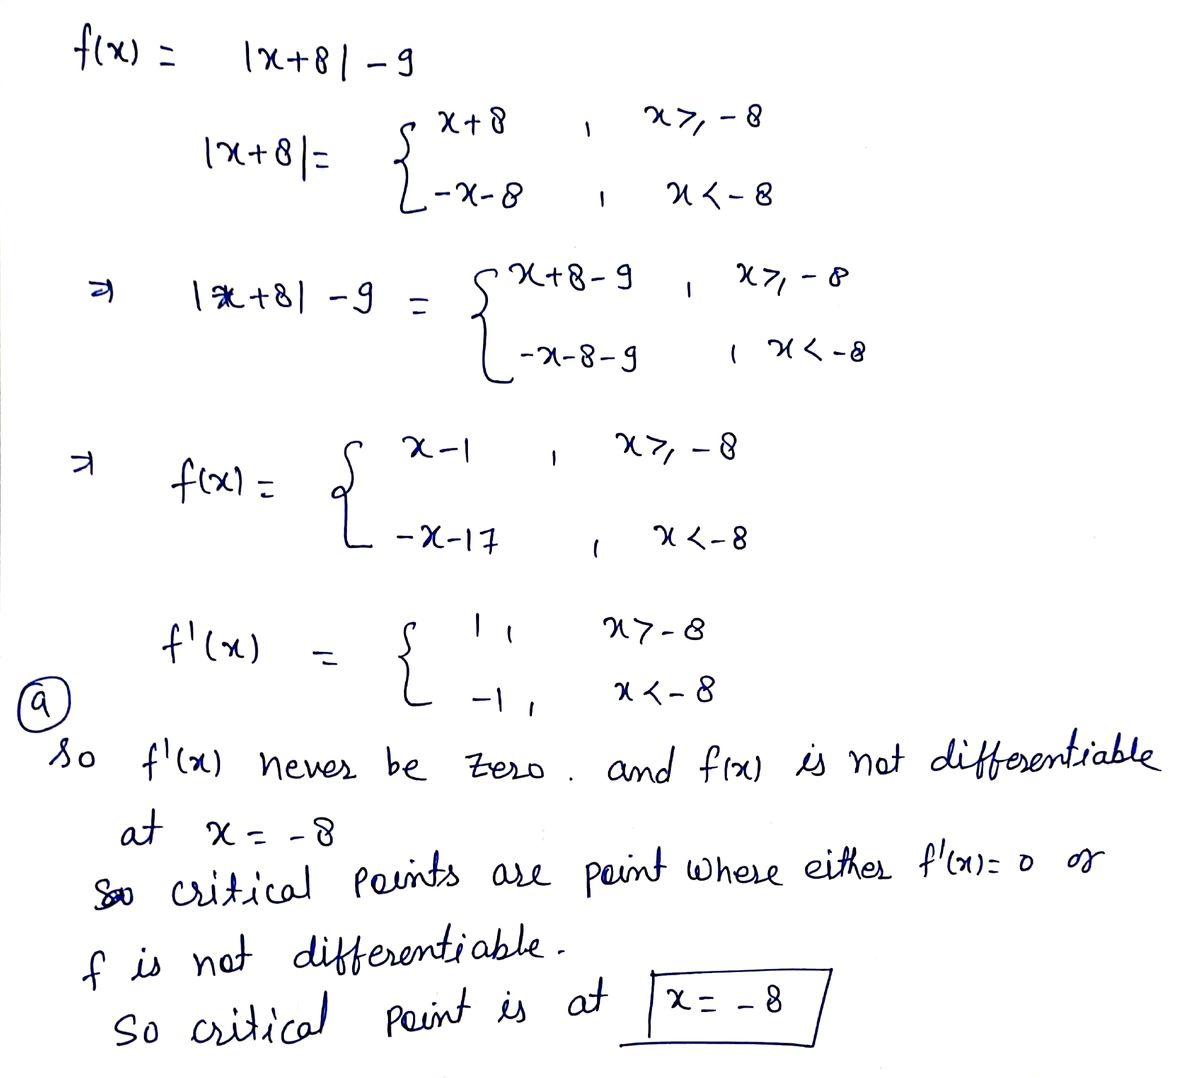 f(x) = |x+8| - 9
|x+8| = { x+8 , x ≥ -8
-x-8 , x < -8
⇒ |x+8| - 9 = { x+8-9 , x ≥ -8
-x-8-9 , x < -8
⇒ f(x) = { x-1 , x ≥ -8
-x-17 , x < -8
f'(x) = { 1 , x > -8
-1 , x < -8
(a)
So f'(x) never be zero. and f(x) is not differentiable
at x = -8
So critical points are point where either f'(x) = 0 or
f is not differentiable.
So critical point is at x = -8